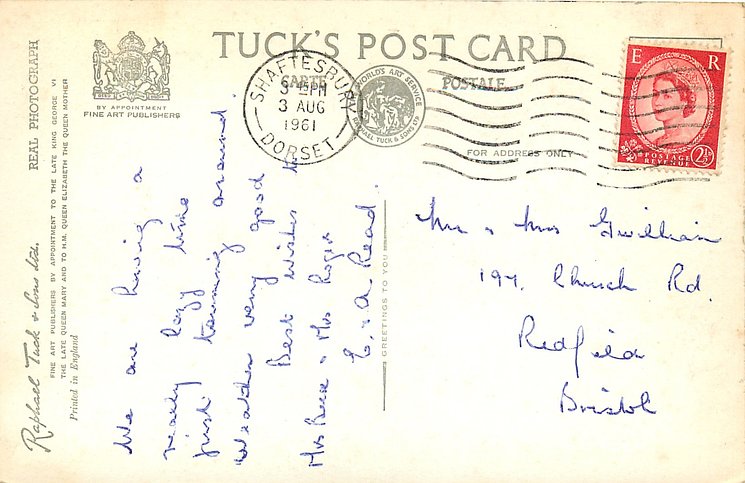 TUCK'S POST CARD
CARTE POSTALE
BY APPOINTMENT
FINE ART PUBLISHERS
SHAFTESBURY
5-15PM
3 AUG
1961
DORSET
WORLD'S ART SERVICE
RAPHAEL TUCK & SONS LTD
FOR ADDRESS ONLY
E R
POSTAGE
REVENUE
2½D
REAL PHOTOGRAPH
Raphael Tuck & Sons Ltd.
FINE ART PUBLISHERS BY APPOINTMENT TO THE LATE KING GEORGE VI
THE LATE QUEEN MARY AND TO H.M. QUEEN ELIZABETH THE QUEEN MOTHER
Printed in England
We are having a
really lazy time
just touring around
Weather very good
Best wishes to
Mrs & Mrs Roger
E. & A. Read.
GREETINGS TO YOU
Mr & Mrs Gwillian
197. Church Rd.
Redfield
Bristol